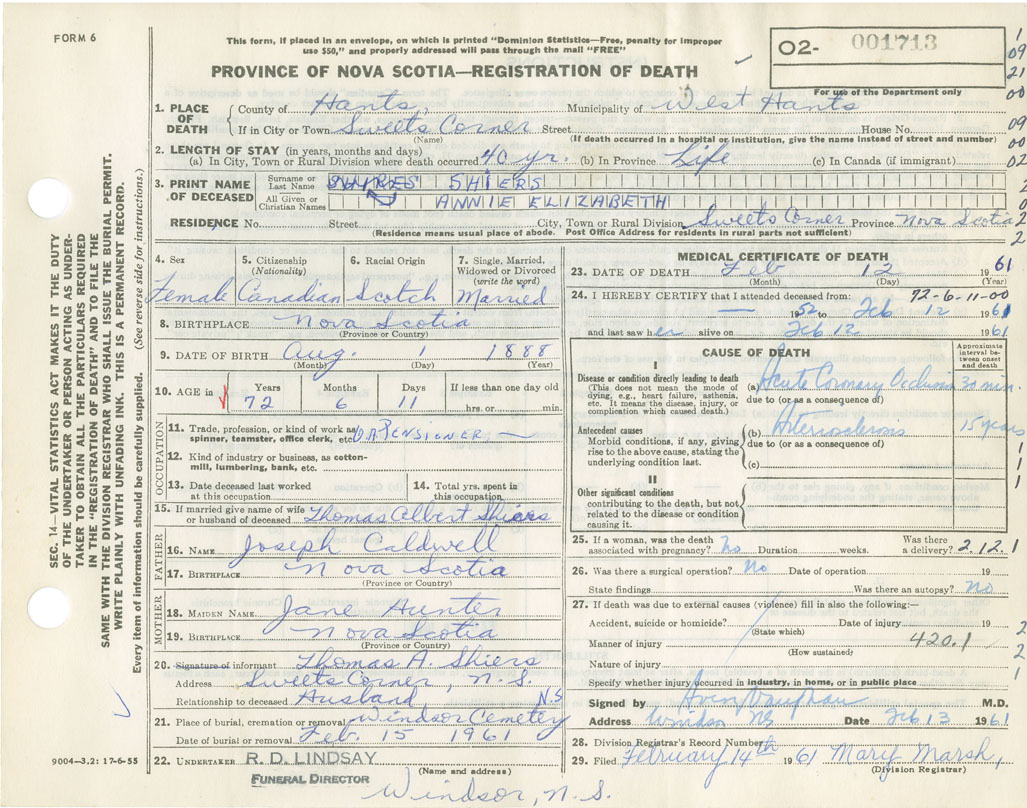 FORM 6
This form, if placed in an envelope, on which is printed "Dominion Statistics—Free, penalty for improper
use $50," and properly addressed will pass through the mail "FREE"
O2- 001713
For use of the Department only
PROVINCE OF NOVA SCOTIA—REGISTRATION OF DEATH
1. PLACE OF DEATH
County of Hants, Municipality of West Hants
If in City or Town Sweets Corner Street House No.
(Name) (If death occurred in a hospital or institution, give the name instead of street and number)
2. LENGTH OF STAY (in years, months and days)
(a) In City, Town or Rural Division where death occurred 40 yr. (b) In Province Life (c) In Canada (if immigrant)
3. PRINT NAME OF DECEASED
Surname or Last Name SHIERS
All Given or Christian Names ANNIE ELIZABETH
RESIDENCE No. Street City, Town or Rural Division Sweets Corner Province Nova Scotia
(Residence means usual place of abode. Post Office Address for residents in rural parts not sufficient)
4. Sex Female
5. Citizenship (Nationality) Canadian
6. Racial Origin Scotch
7. Single, Married, Widowed or Divorced (write the word) Married
8. BIRTHPLACE Nova Scotia
(Province or Country)
9. DATE OF BIRTH Aug. 1 1888
(Month) (Day) (Year)
10. AGE in Years Months Days If less than one day old
72 6 11 hrs. or min.
OCCUPATION
11. Trade, profession, or kind of work as spinner, teamster, office clerk, etc. O.A. PENSIONER —
12. Kind of industry or business, as cotton-mill, lumbering, bank, etc.
13. Date deceased last worked at this occupation
14. Total yrs. spent in this occupation
15. If married give name of wife or husband of deceased Thomas Albert Shiers
FATHER
16. NAME Joseph Caldwell
17. BIRTHPLACE Nova Scotia
(Province or Country)
MOTHER
18. MAIDEN NAME Jane Hunter
19. BIRTHPLACE Nova Scotia
(Province or Country)
20. Signature of informant Thomas A. Shiers
Address Sweets Corner, N.S.
Relationship to deceased Husband N.S
21. Place of burial, cremation or removal Windsor Cemetery
Date of burial or removal Feb. 15 1961
22. UNDERTAKER R. D. LINDSAY
FUNERAL DIRECTOR (Name and address)
Windsor, N.S.
9004—3.2: 17-6-55
MEDICAL CERTIFICATE OF DEATH
23. DATE OF DEATH Feb 12 1961
(Month) (Day) (Year)
24. I HEREBY CERTIFY that I attended deceased from: 72-6-11-00
— 1952 to Feb 12 1961
and last saw her alive on Feb 12 1961
CAUSE OF DEATH
Approximate interval between onset and death
I
Disease or condition directly leading to death (a) Acute Coronary Occlusion 30 min.
(This does not mean the mode of dying, e.g., heart failure, asthenia, etc. It means the disease, injury, or complication which caused death.)
due to (or as a consequence of)
Antecedent causes (b) Arteriosclerosis 15 years
Morbid conditions, if any, giving rise to the above cause, stating the underlying condition last.
due to (or as a consequence of)
(c)
II
Other significant conditions
contributing to the death, but not related to the disease or condition causing it.
25. If a woman, was the death associated with pregnancy? No Duration weeks. Was there a delivery? 2.12.1
26. Was there a surgical operation? No Date of operation 19
State findings Was there an autopsy? No
27. If death was due to external causes (violence) fill in also the following:—
Accident, suicide or homicide? Date of injury 19
(State which)
Manner of injury 420.1
(How sustained)
Nature of injury
Specify whether injury occurred in industry, in home, or in public place
Signed by M.D.
Address Windsor NS Date Feb 13 1961
28. Division Registrar's Record Number
29. Filed February 14th 1961 Mary Marsh,
(Division Registrar)
SEC. 14—VITAL STATISTICS ACT MAKES IT THE DUTY
OF THE UNDERTAKER OR PERSON ACTING AS UNDER-
TAKER TO OBTAIN ALL THE PARTICULARS REQUIRED
IN THE "REGISTRATION OF DEATH" AND TO FILE THE
SAME WITH THE DIVISION REGISTRAR WHO SHALL ISSUE THE BURIAL PERMIT.
WRITE PLAINLY WITH UNFADING INK. THIS IS A PERMANENT RECORD.
Every item of information should be carefully supplied. (See reverse side for instructions.)
1
09
21
00
09
00
02
2
0
2
2
1
1
1
2
2
1